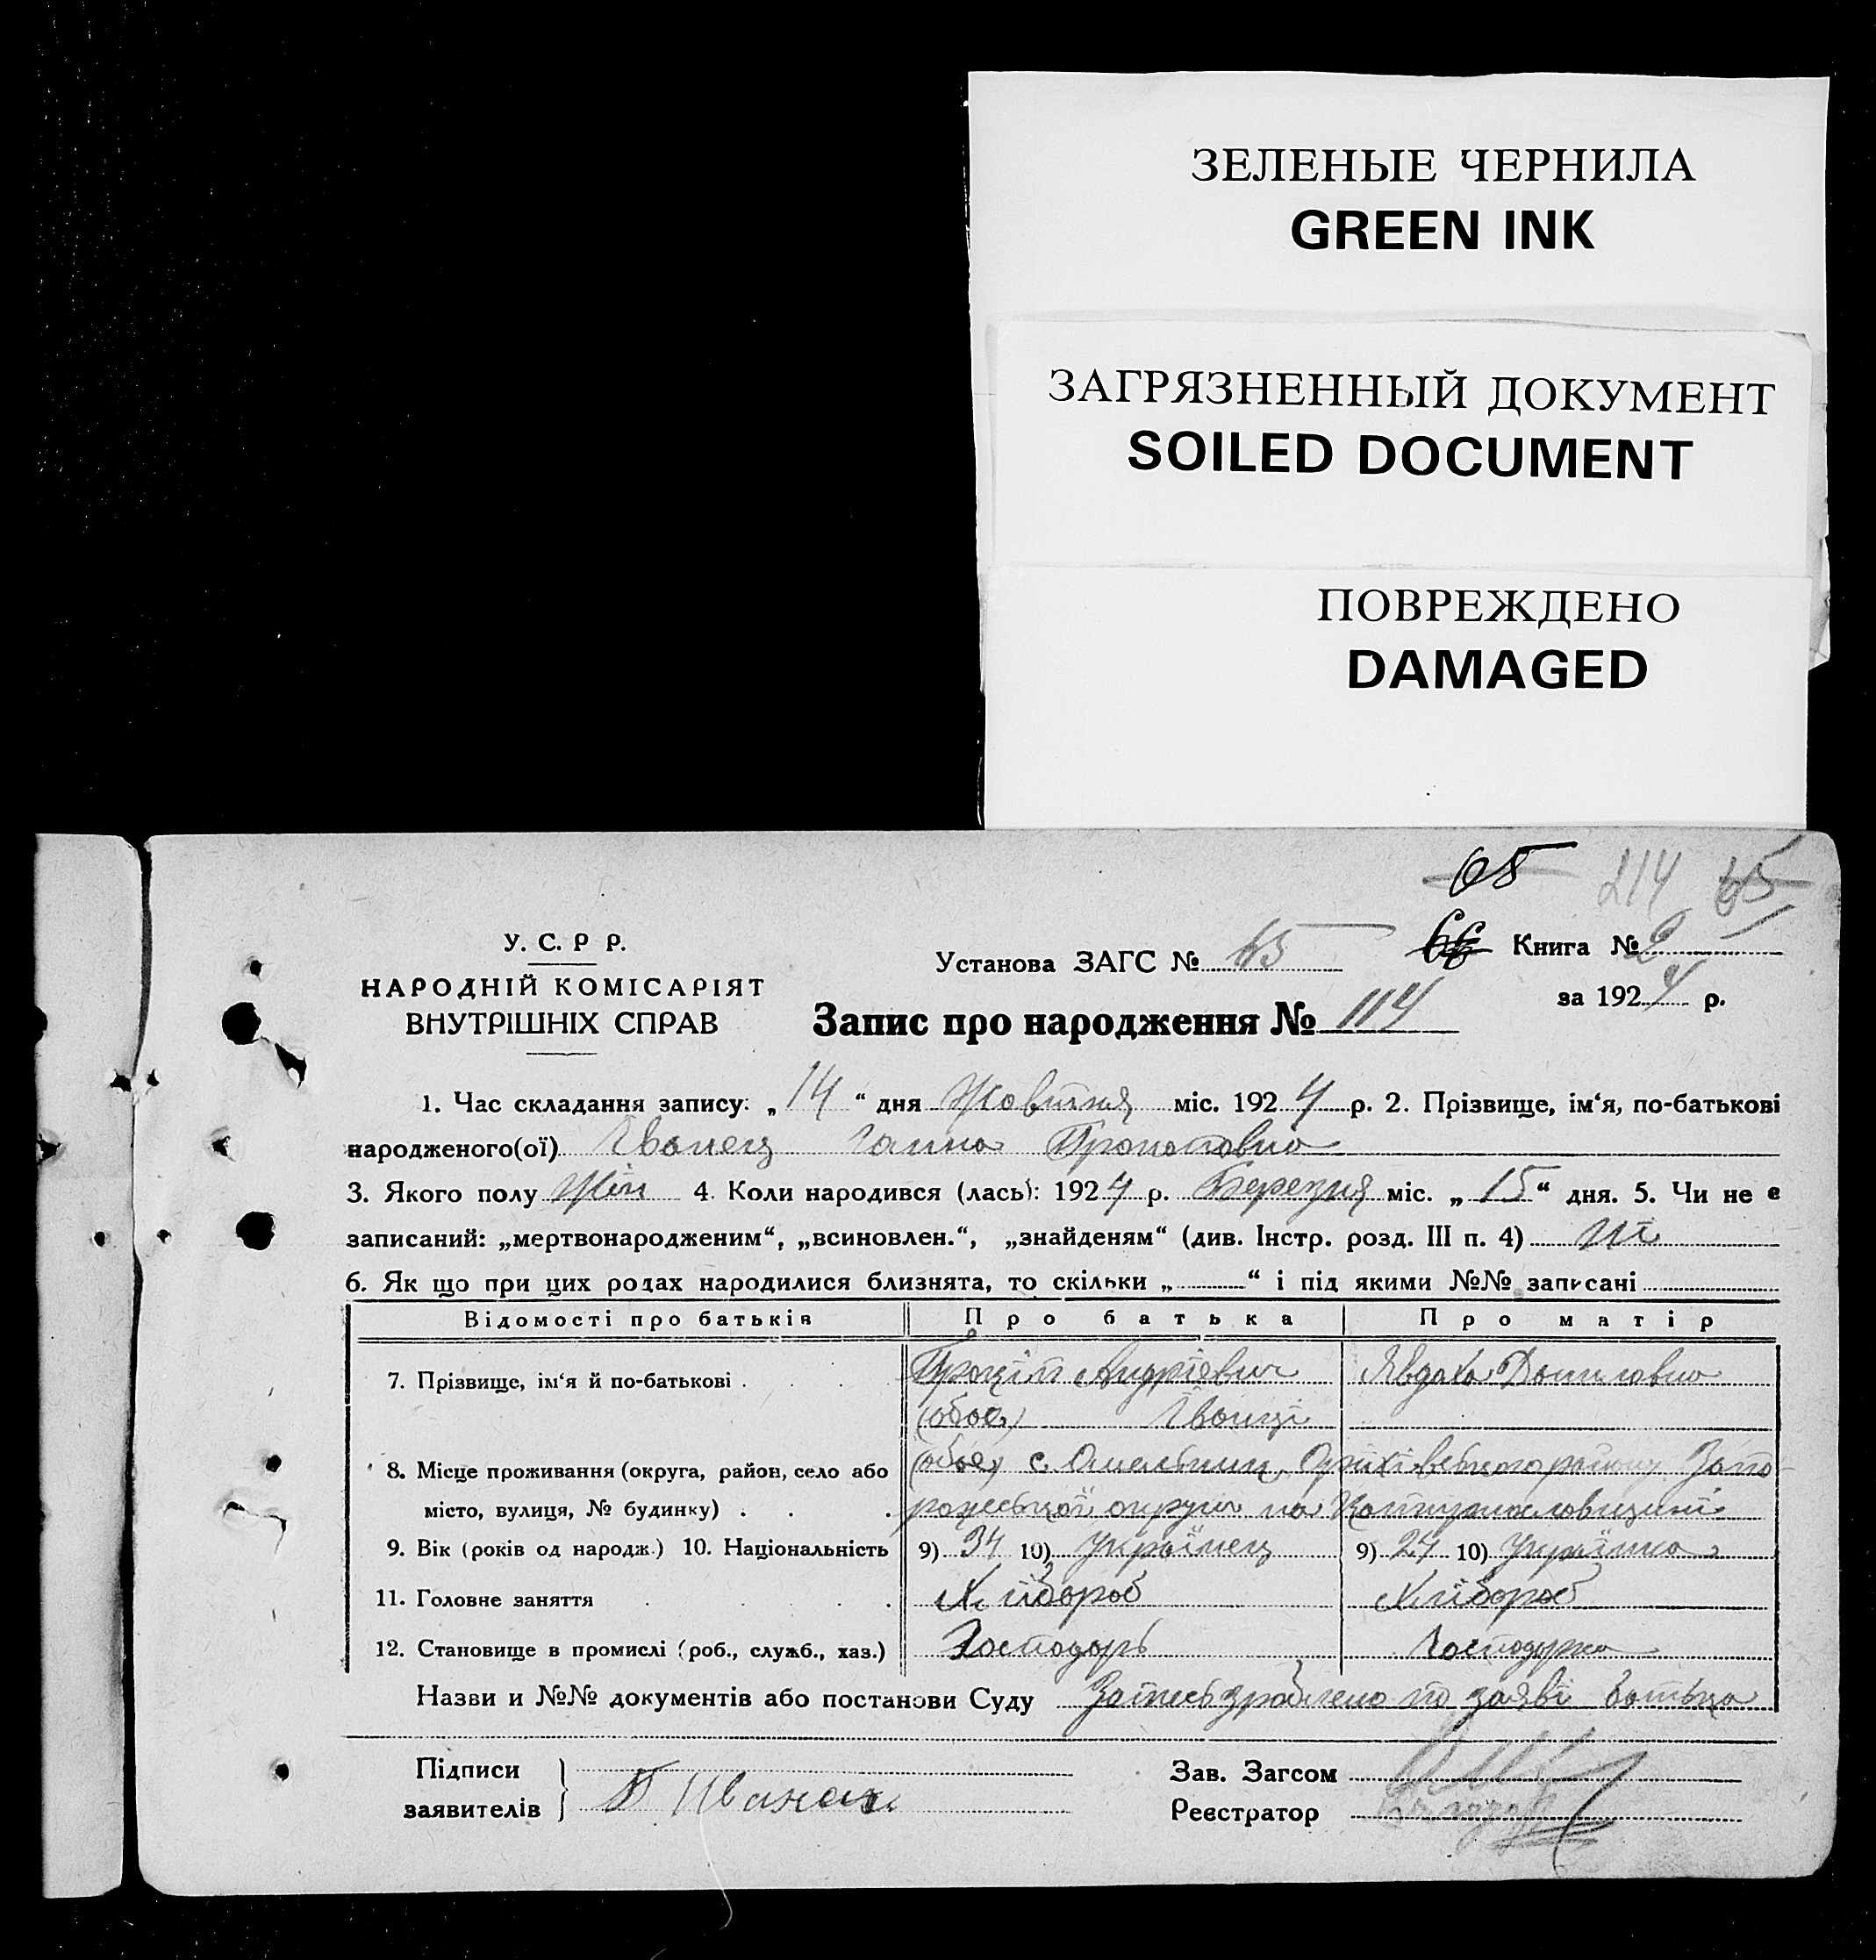 ЗЕЛЕНЫЕ ЧЕРНИЛА
GREEN INK
ЗАГРЯЗНЕННЫЙ ДОКУМЕНТ
SOILED DOCUMENT
ПОВРЕЖДЕНО
DAMAGED
65 214 65
У. С. Р Р.
НАРОДНІЙ КОМІСАРІЯТ
ВНУТРІШНІХ СПРАВ
Установа ЗАГС № 45 66 Книга № 2
за 1924 р.
Запис про народження № 114
1. Час складання запису: „14“ дня Жовтня міс. 1924 р. 2. Прізвище, ім‘я, по-батькові
народженого(ої) Іванец Ганна
3. Якого полу Жін 4. Коли народився (лась): 1924 р. Березня міс. „15“ дня. 5. Чи не є
записаний: „мертвонародженим“, „всиновлен.“, „знайденям“ (див. Інстр. розд. III п. 4) ні
6. Як що при цих родах народилися близнята, то скільки „ “ і під якими №№ записані
Відомості про батьків Про батька Про матір
7. Прізвище, ім‘я й по-батькові Андрієвич Явдоха Данилавна
(обоє) Іванці
8. Місце проживання (округа, район, село або (обоє) с. Омельник Оріхівського району Запо-
місто, вулиця, № будинку) рожської округи на Катеринославщині
9. Вік (років од народж.) 10. Національність 9) 34 10) Українец 9) 24 10) Українка
11. Головне заняття Хлібороб Хлібороб
12. Становище в промислі (роб., служб., хаз.) Господарь Господарка
Назви и №№ документів або постанови Суду Запись зроблено по заяві батька
Підписи
заявителів П Иванец
Зав. Загсом
Реєстратор